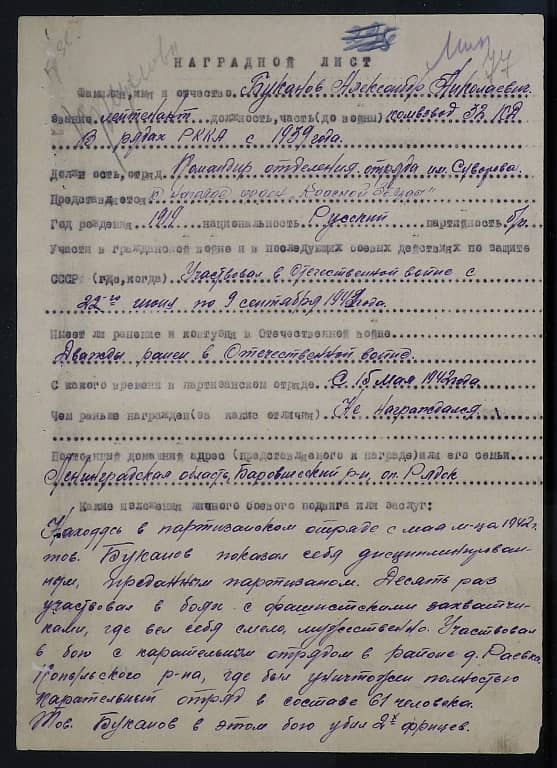 77
НАГРАДНОЙ ЛИСТ
Фамилия, имя и отчество Буканов Александр Николаевич.
Звание лейтенант должность, часть (до войны) комвзвод 32 КД
В рядах РККА с 1939 года.
Должность, отряд Командир отделения отряда им. Суворова
Представляется к награде орден „Красной Звезды"
Год рождения 1919 национальность Русский партийность б/п.
Участи в гражданской войне и в последующих боевых действиях по защите
СССР (где, когда) Участвовал в Отечественной войне с
22го июня по 9 сентября 1942 года.
Имеет ли ранение и контузии в Отечественной войне
Дважды ранен в Отечественной войне.
С какого времени в партизанском отряде С 15 мая 1942 года
Чем раньше награжден (за какие отличия) Не награждался
Постоянный домашний адрес (представляемого к награде) или его семьи
Ленинградская область, р-н, ст.
Какие изложения личного боевого подвига или заслуг:
Находясь в партизанском отряде с мая м-ца 1942 г.
тов. Буканов показал себя дисциплинирован-
ным, преданным партизаном. Десять раз
участвовал в боях с фашистскими захватчи-
ками, где вел себя смело, мужественно. Участвовал
в бою с карательным отрядом в районе д. Раевка,
Копыльского р-на, где был уничтожен полностью
карательный отряд в составе 61 человека.
Тов. Буканов в этом бою убил 2х фрицев.